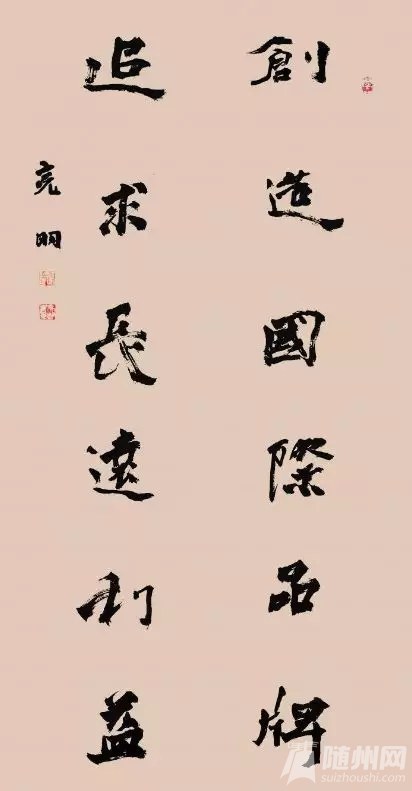 創造國際品牌
追求長遠利益
亮明
随州网
suizhoushi.com